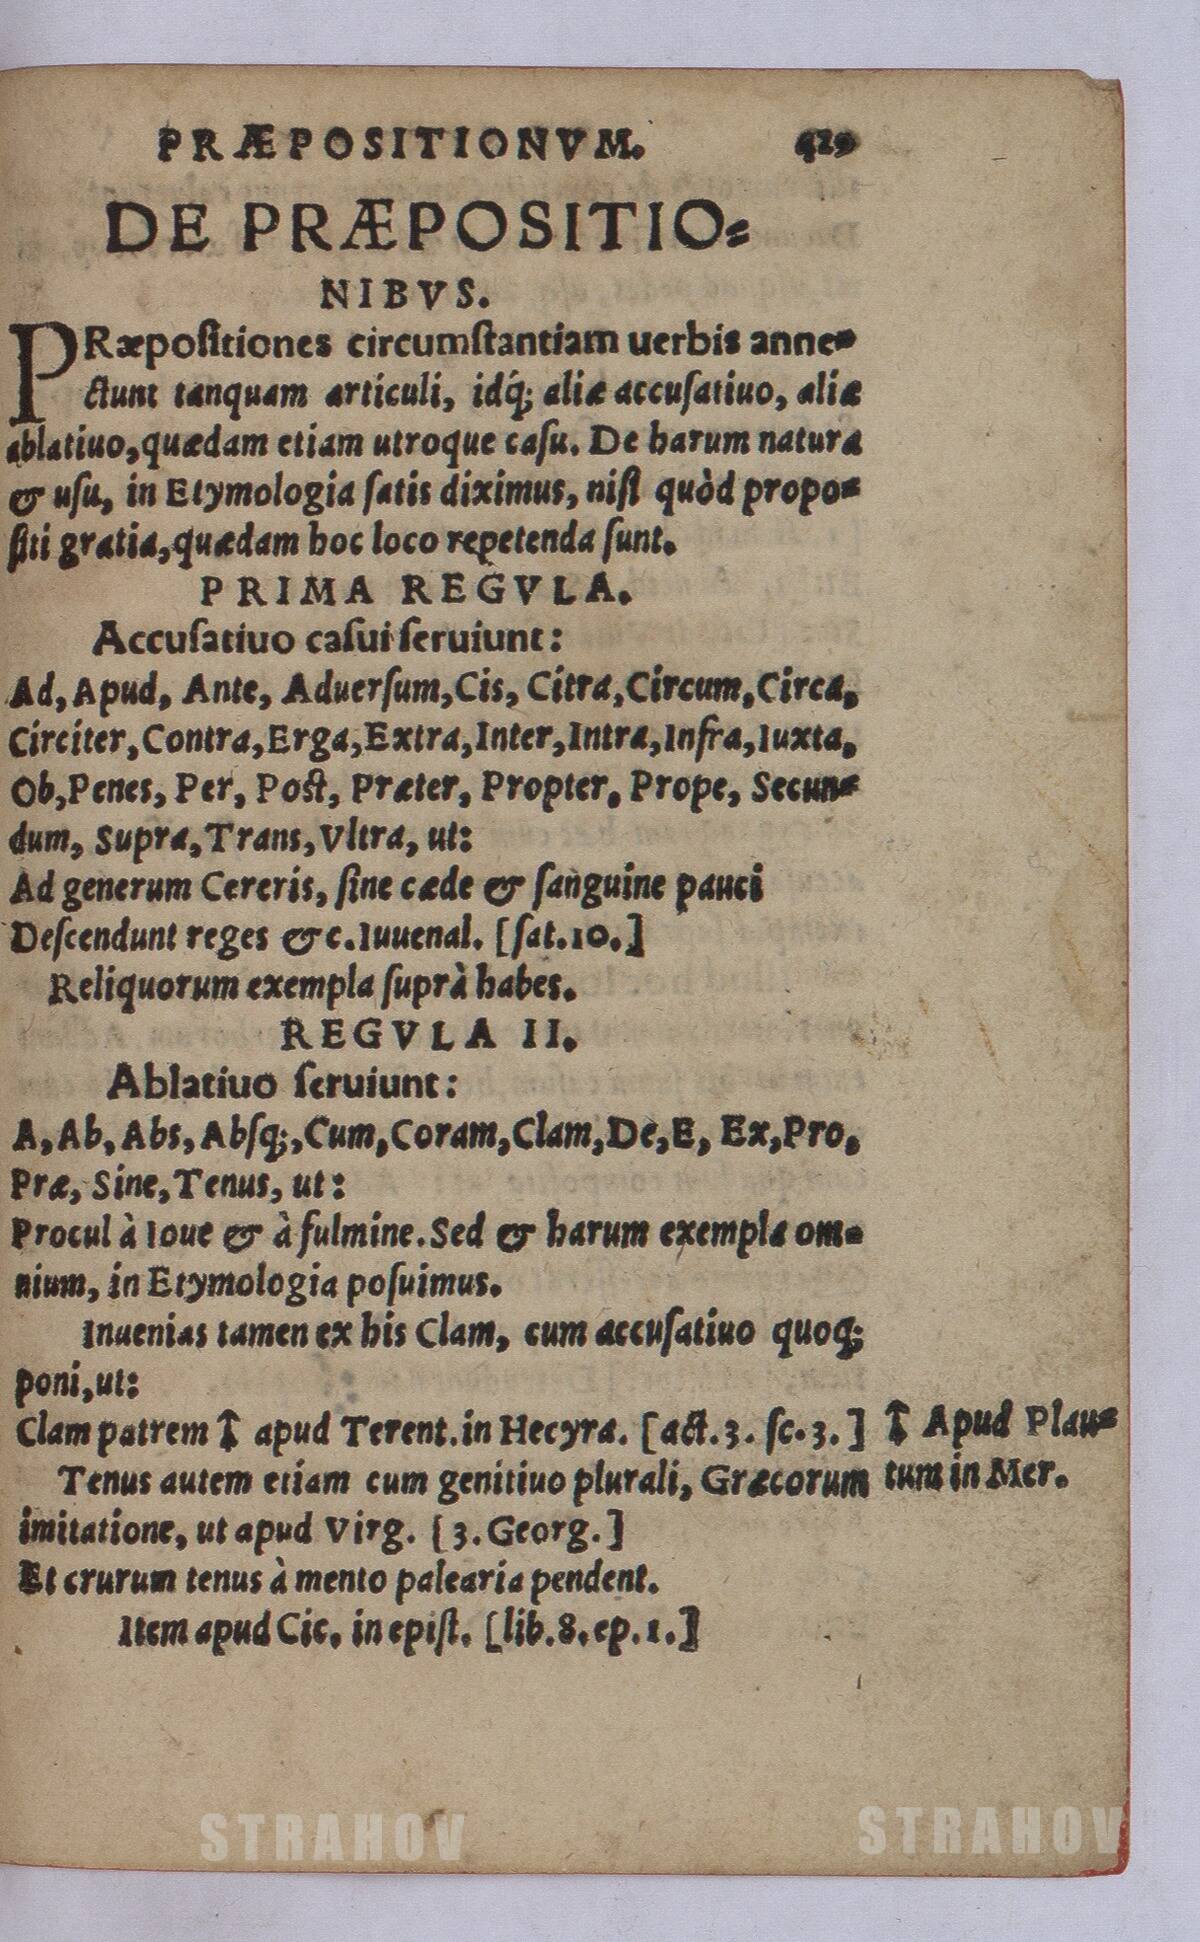 PRÆPOSITIONVM. 429
DE PRÆPOSITIO⸗
NIBVS.
PRæpoſitiones circumſtantiam uerbis anne⸗
ctunt tanquam articuli, idq́; aliæ accuſatiuo, aliæ
ablatiuo, quædam etiam utroque caſu. De harum natura
& uſu, in Etymologia ſatis diximus, niſi quòd propo⸗
ſiti gratia, quædam hoc loco repetenda ſunt.
PRIMA REGVLA.
Accuſatiuo caſui ſeruiunt:
Ad, Apud, Ante, Aduerſum, Cis, Citra, Circum, Circa,
Circiter, Contra, Erga, Extra, Inter, Intra, Infra, Iuxta,
Ob, Penes, Per, Poſt, Præter, Propter, Prope, Secun⸗
dum, Supra, Trans, Vltra, ut:
Ad generum Cereris, ſine cæde & ſanguine pauci
Deſcendunt reges &c. Iuuenal. [ſat. 10.]
Reliquorum exempla ſuprà habes.
REGVLA II.
Ablatiuo ſeruiunt:
A, Ab, Abs, Abſq;, Cum, Coram, Clam, De, E, Ex, Pro,
Præ, Sine, Tenus, ut:
Procul à Ioue & à fulmine. Sed & harum exempla om⸗
nium, in Etymologia poſuimus.
Inuenias tamen ex his Clam, cum accuſatiuo quoq;
poni, ut:
Clam patrem ↥ apud Terent. in Hecyra. [act. 3. ſc. 3.] ↥ Apud Plau⸗
Tenus autem etiam cum genitiuo plurali, Græcorum tum in Mer.
imitatione, ut apud Virg. [3. Georg.]
Et crurum tenus à mento palearia pendent.
Item apud Cic. in epiſt. [lib. 8. ep. 1.]
STRAHOV STRAHOV